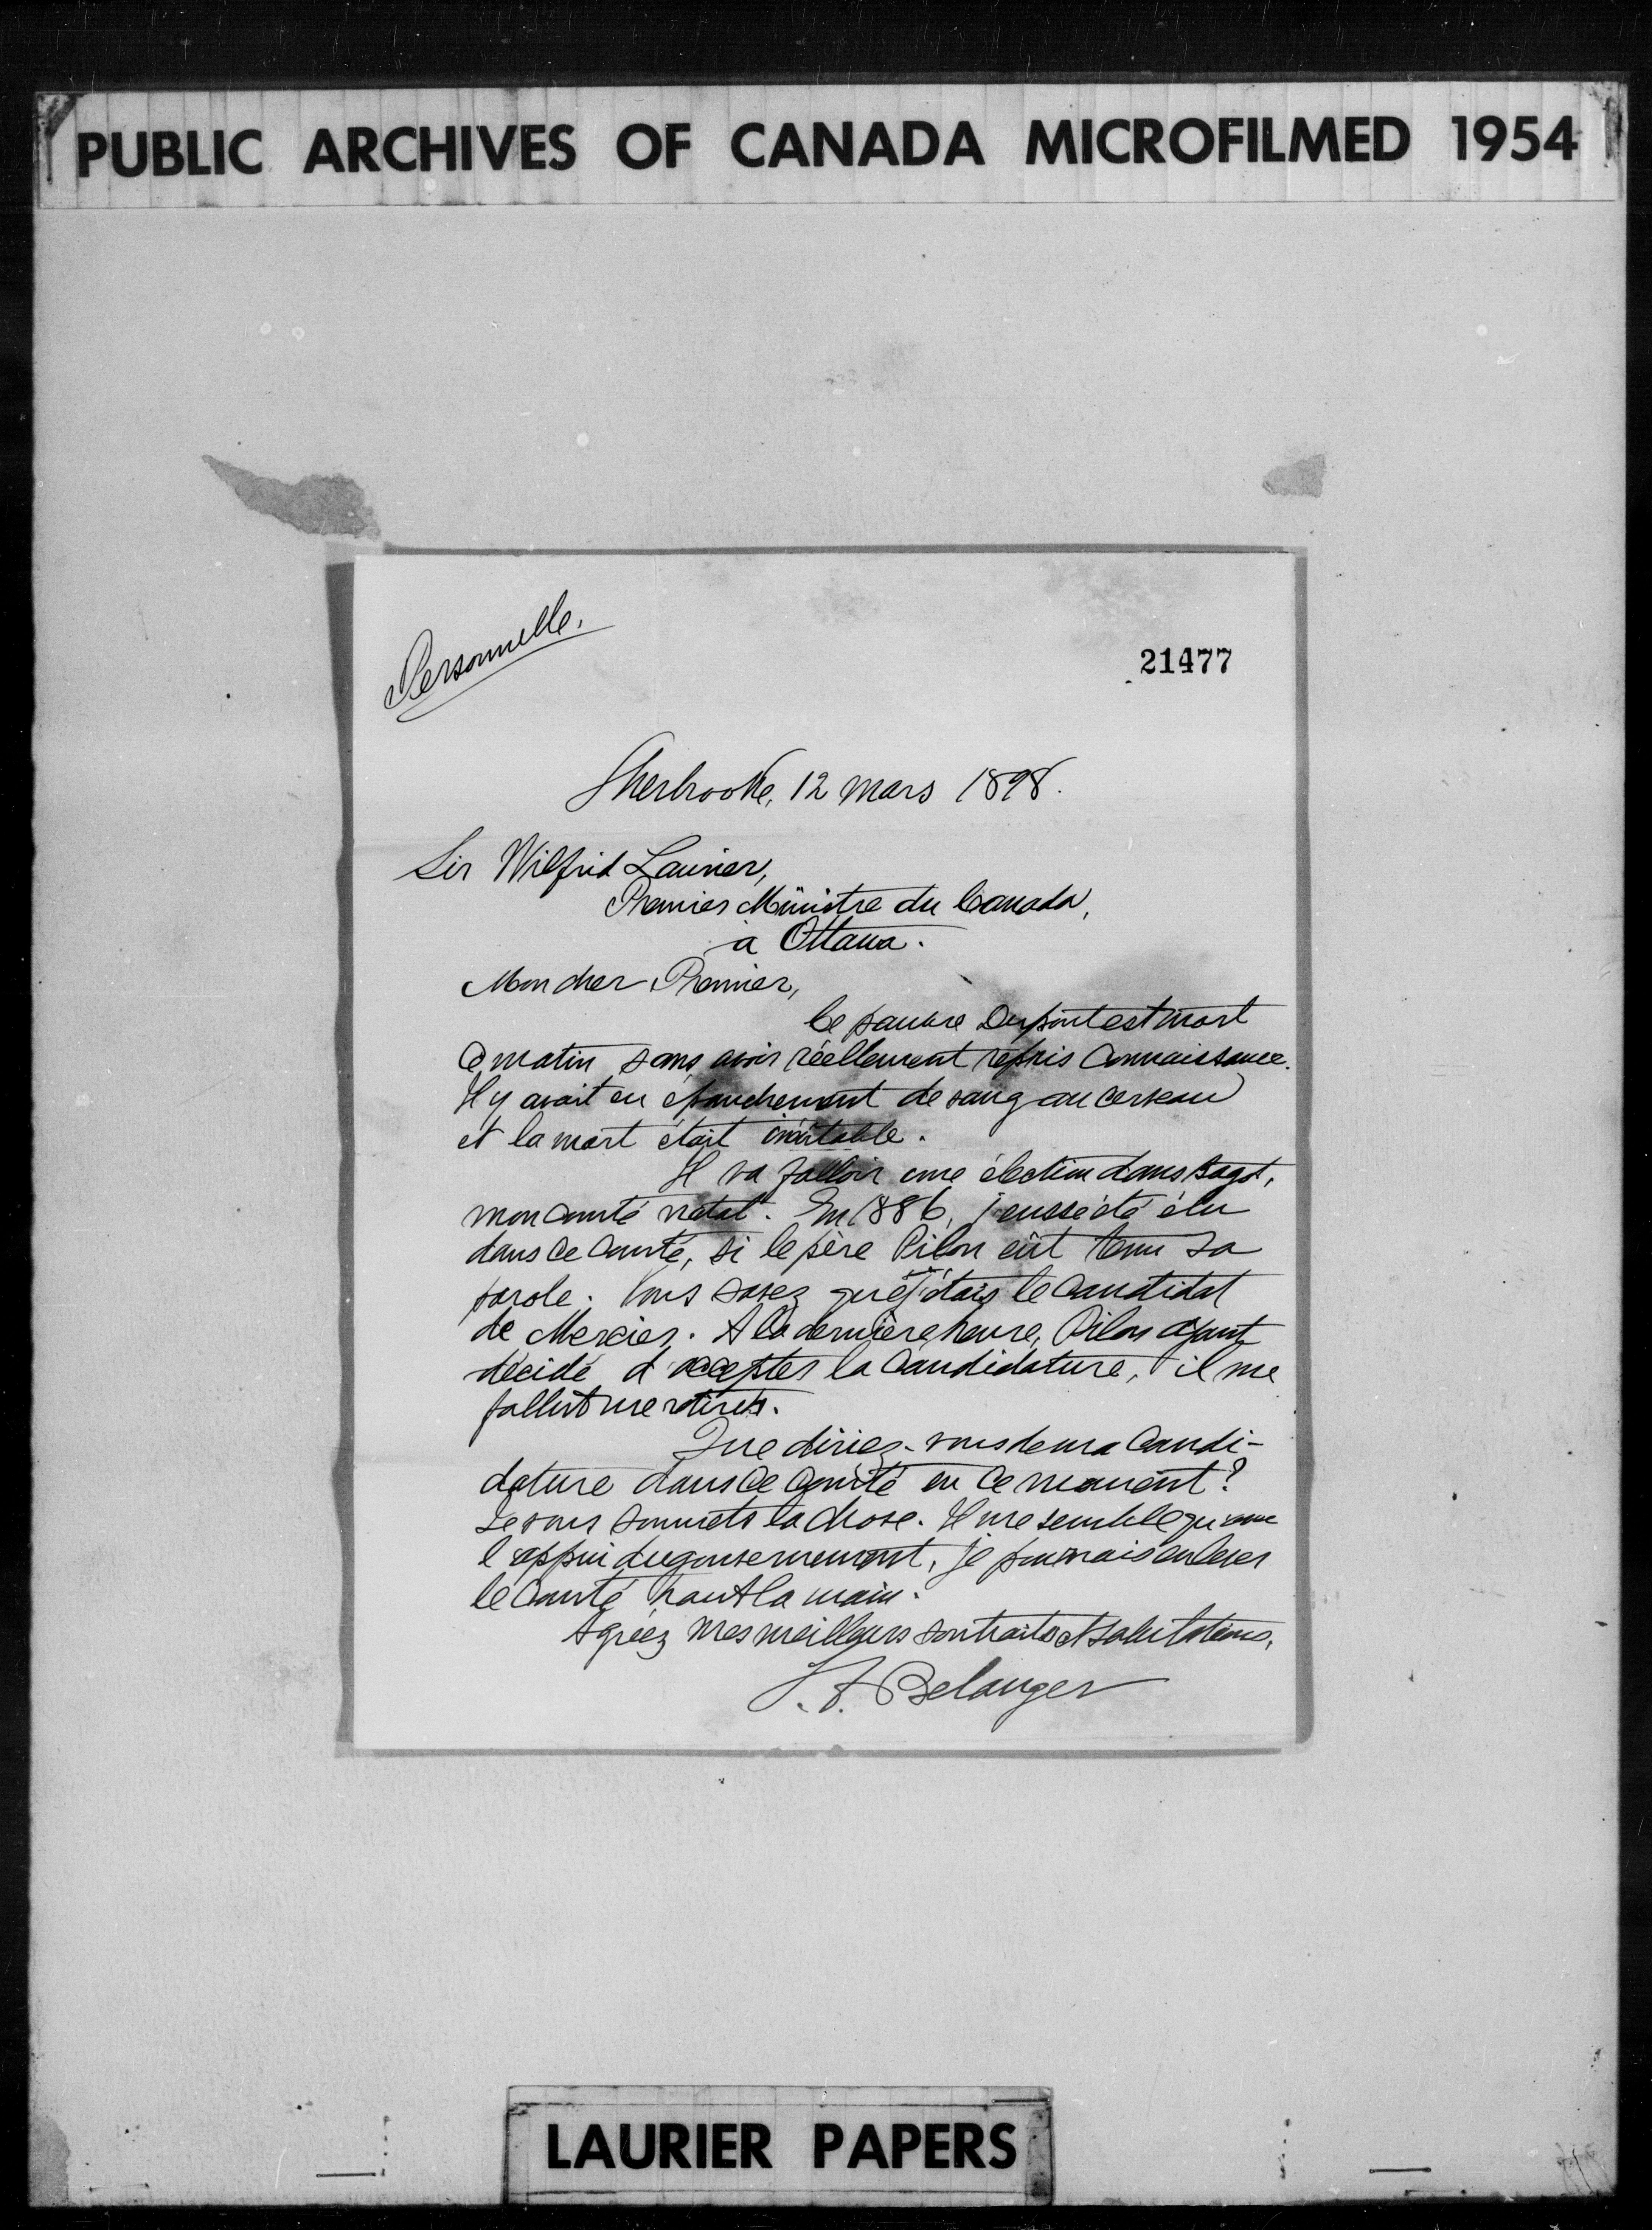 PUBLIC ARCHIVES OF CANADA MICROFILMED 1954
Personnelle.
21477
Sherbrooke, 12 mars 1898.
Sir Wilfrid Laurier,
Premier Ministre du Canada,
à Ottawa.
Mon cher Premier,
Ce pauvre Dupont est mort
ce matin sans avoir réellement repris connaissance.
Il y avait eu épanchement de sang au cerveau
et la mort était inévitable.
Il va falloir une élection dans Bagot,
mon comté natal. En 1886, j'eusse été élu
dans ce comté, si le père Pilon eût tenu sa
parole. Vous savez que j'étais le candidat
de Mercier. A la dernière heure, Pilon ayant
décidé d'accepter la candidature, il me
fallut me retirer.
Que diriez-vous de ma candi-
dature dans ce comté en ce moment?
Je vous soumets la chose. Il me semble qu'avec
l'appui du gouvernement, je pourrais enlever
le comté haut la main.
Agréez mes meilleurs souhaits et salutations,
L. A. Belanger
LAURIER PAPERS